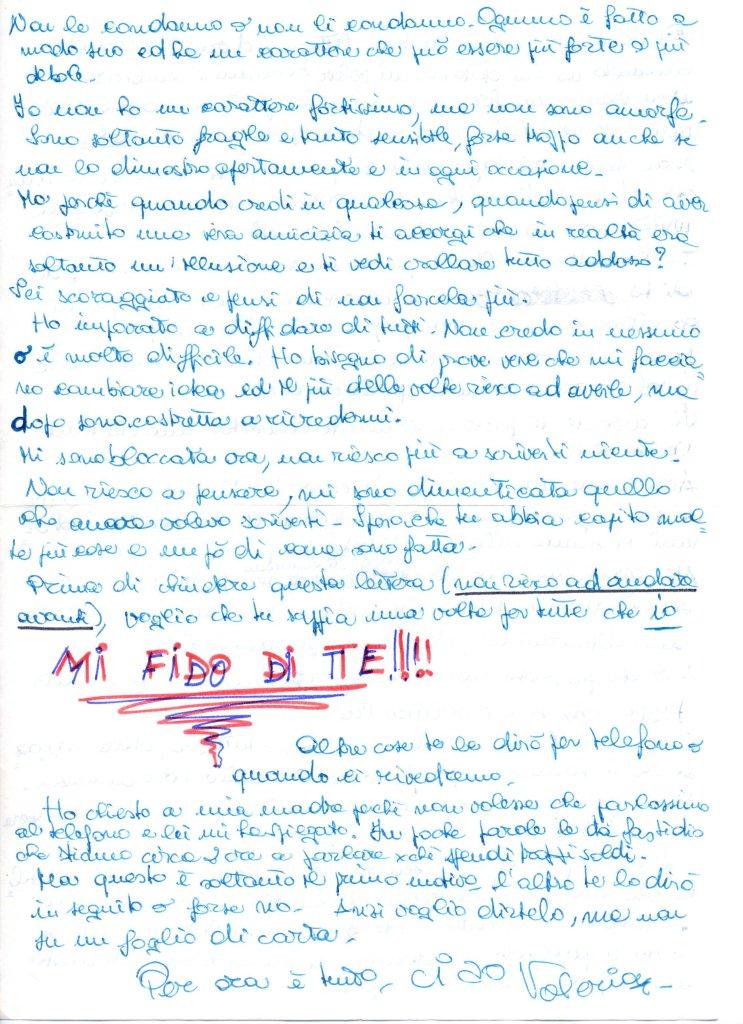 Non le condanno o non li condanno. Ognuno è fatto a
modo suo ed ha un carattere che può essere più forte o più
debole.
Io non ho un carattere fortissimo, ma non sono amorfa.
Sono soltanto fragile e tanto sensibile, forse troppo anche se
non lo dimostro apertamente e in ogni occasione.
Ma perché quando credi in qualcosa, quando pensi di aver
costruito una vera amicizia ti accorgi che in realtà era
soltanto un'illusione e ti vedi crollare tutto addosso?
Sei scoraggiato e pensi di non farcela più.
Ho imparato a diffidare di tutti. Non credo in nessuno
o è molto difficile. Ho bisogno di prove vere che mi faccia=
no cambiare idea ed il più delle volte riesco ad averle, ma
dopo sono costretta a ricredermi.
Mi sono bloccata ora, non riesco più a scriverti niente.
Non riesco a pensare, mi sono dimenticata quello
che ancora volevo scriverti - Spero che tu abbia capito mol=
te più cose e un pò di come sono fatta.
Prima di chiudere questa lettera (non riesco ad andare
avanti), voglio che tu sappia una volta per tutte che io
MI FIDO DI TE!!!!
Altre cose te le dirò per telefono o
quando ci rivedremo.
Ho chiesto a mia madre perché non volesse che parlassimo
al telefono e lei mi ha spiegato. In poche parole le dà fastidio
che stiamo circa 2 ore a parlare xchè spendi troppi soldi.
Ma questo è soltanto il primo motivo, l'altro te lo dirò
in seguito o forse no. Anzi voglio dirtelo, ma non
su un foglio di carta.
Per ora è tutto, ciao Valeria